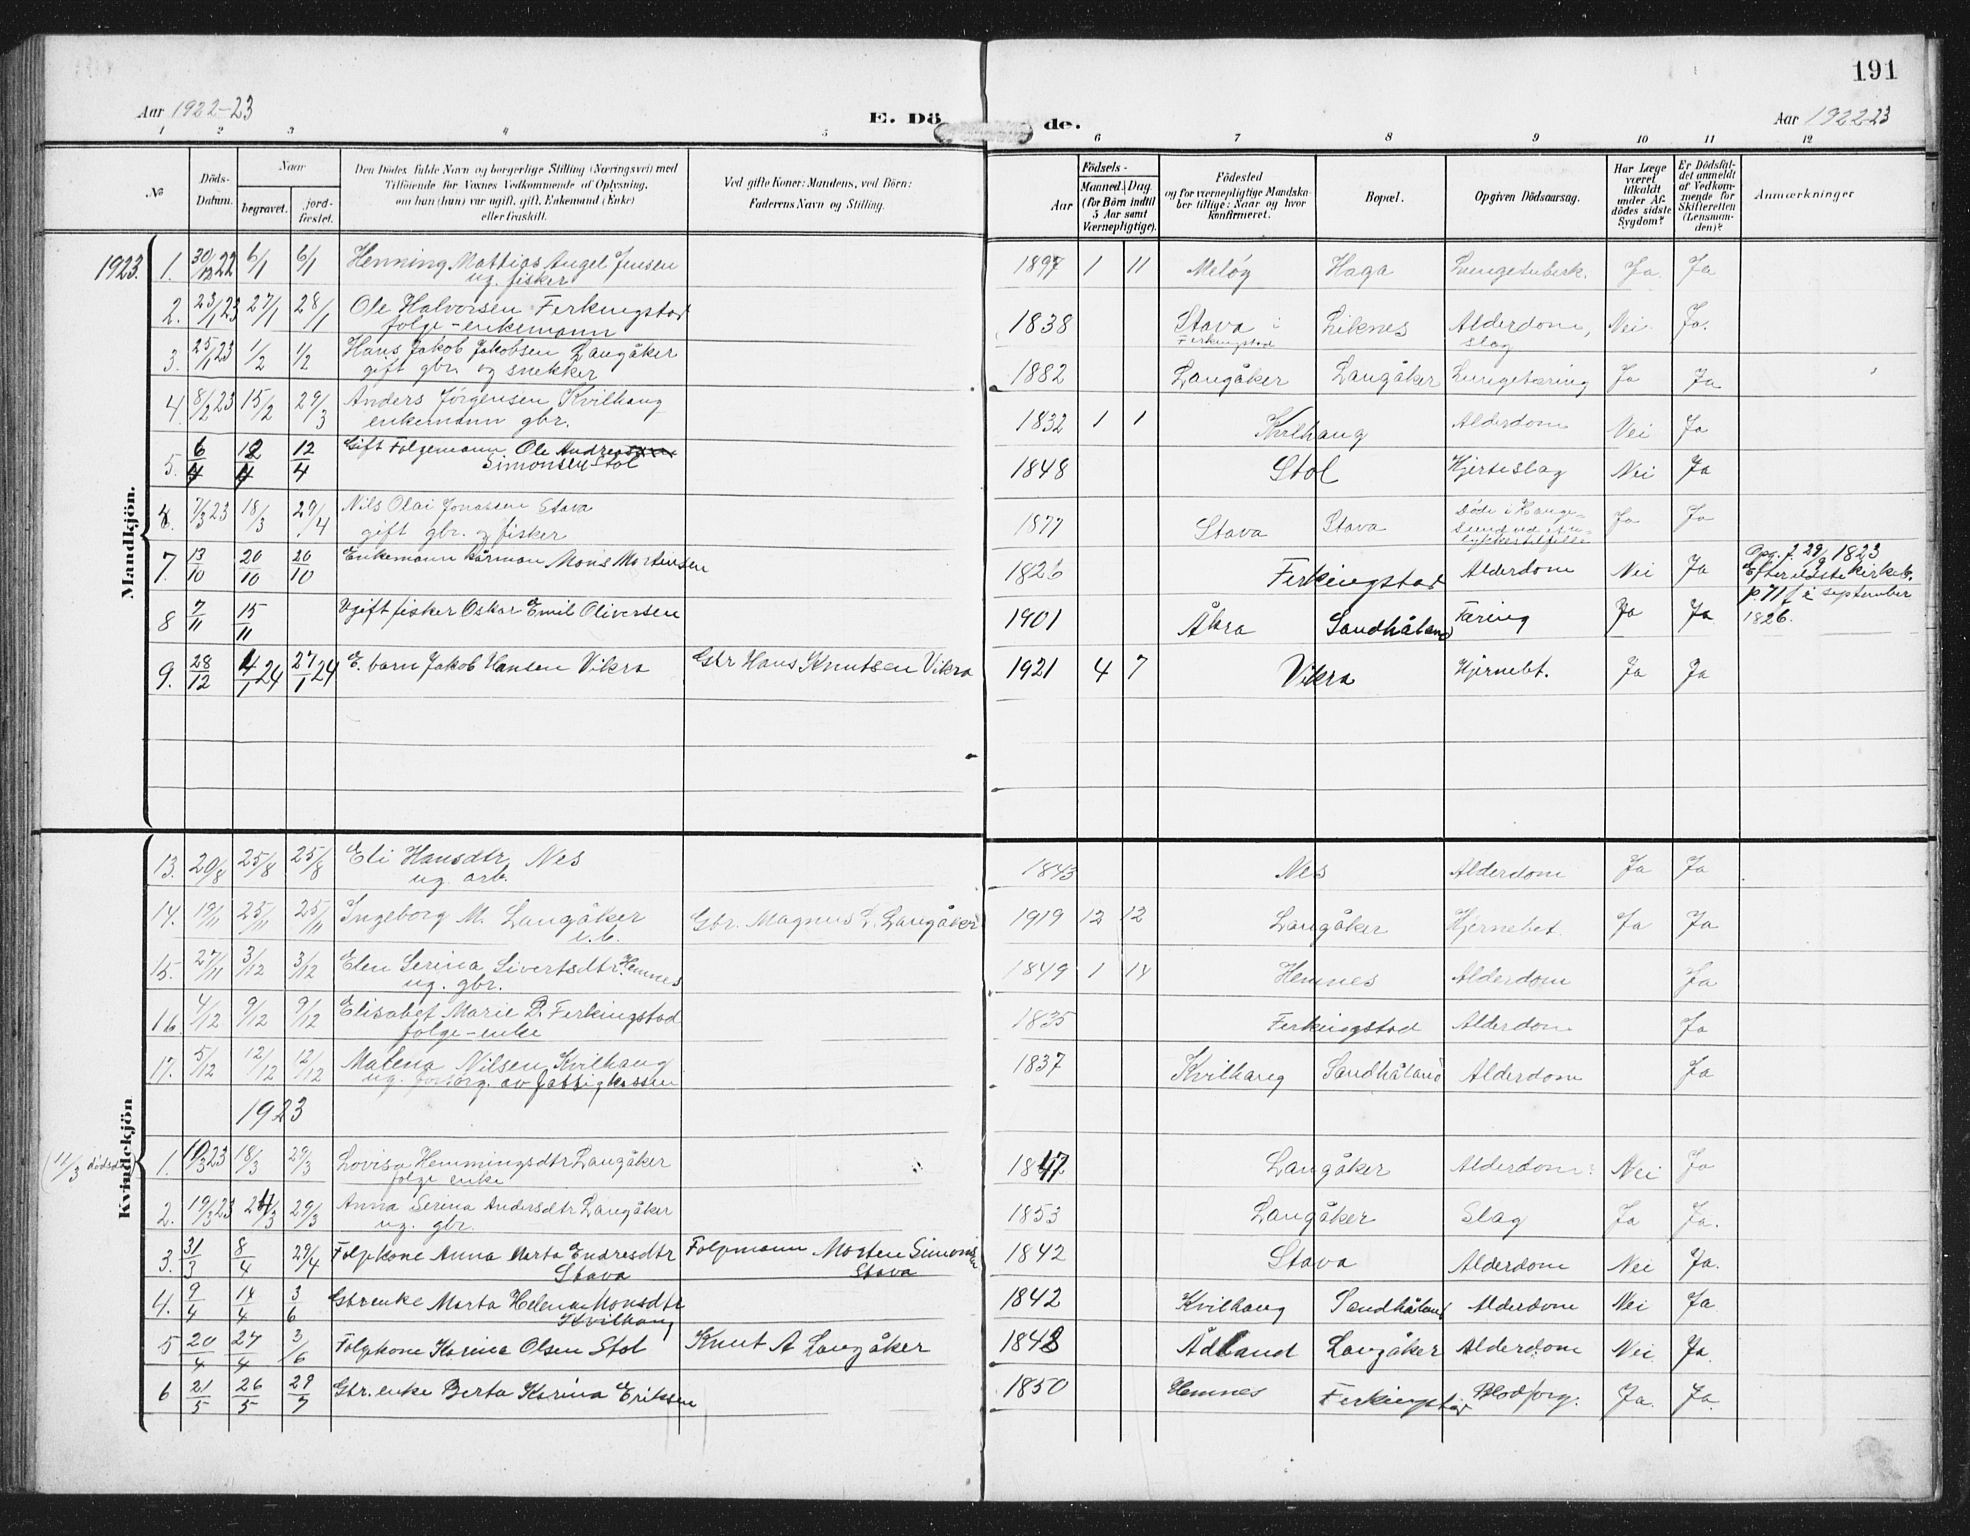 191
Aar 1922-23
E. Dö
de.
Aar 1922-23
1 2 3 4 5 6 7 8 9 10 11 12
No
Döds-Datum.
Naar
begravet.
jordfæstet.
Den Dödes fulde Navn og borgerlige Stilling (Næringsvei) med
Tilföiende for Voxnes Vedkommende af Oplysning,
om han (hun) var ugift, gift, Enkemand (Enke)
eller fraskilt.
Ved gifte Koner: Mandens, ved Börn:
Faderens Navn og Stilling.
Födsels-
Aar
Maaned. Dag
(for Börn indtil
5 Aar samt
Værnepligtige).
Födested
og for værnepligtige Mandska-
ber tillige: Naar og hvor
konfirmeret.
Bopæl.
Opgiven Dödsaarsag.
Har Læge
været
tilkaldt
under Af-
dödes sidste
Sygdom?
Er Dödsfal-
det anmeldt
af Vedkom-
mende for
Skifteretten
(Lensman-
den)?
Anmærkninger
Mandkjön.
1923.
1. 30/12 22 6/1 6/1 Henning Mathias Angel Jensen 1897 1 11 Meløy Haga Lungetuberk. Ja Ja
ug. fisker
2. 23/1 23 27/1 28/1 Ole Halvorsen Ferkingstad 1838 Stava i Liknes Alderdom, Nei. Ja.
folge-enkemann Ferkingstad slag
3. 25/1 23 1/2 1/2 Hans Jakob Jakobsen Langåker 1882 Langåker Langåker Lungetæring Ja Ja
gift gbr. og snekker
4. 8/2 23 15/2 29/3 Anders Jørgensen Kvilhaug 1832 1 1 Kvilhaug Alderdom Nei Ja
enkemann gbr.
5. 6/4 12/4 12/4 Gift Folgemann Ole Andreas 1848 Stol Hjerteslag Nei Ja
Simonsen Stol
7/3 23 18/3 29/4 Nils Olai Jonassen Stava 1877 Stava Stava Døde i Hauge- Ja Ja
gift gbr. og fisker sund ved en u-
lykkestilfelle
7. 13/10 20/10 20/10 Enkemann kårman Mons Mortensen 1826 Ferkingstad Alderdom Nei Ja Opg. f. 29/9 1823
Efter eldste kirkeb.
p. 71 f. i september
1826.
8 7/11 15/11 Ugift fisker Oskar Emil Oliversen 1901 Åkra Sandhåland Tæring Ja Ja
9. 28/12 4/1 24 27/1 24 E. barn Jakob Hansen Vikra Gbr Hans Knutsen Vikra 1921 4 7 Vikra Hjernebet. Ja Ja
Kvindekjön
13. 20/8 25/8 25/8 Eli Hansdtr Nes 1843 Nes Alderdom Ja Ja
ug. arb.
14. 19/11 25/11 25/11 Ingeborg M. Langåker Gbr. Magnus L. Langåker 1919 12 12 Langåker Hjernebet. Ja Ja
e.b.
15. 27/11 3/12 3/12 Elen Serina Sivertsdtr. Hemnes 1849 1 14 Hemnes Alderdom Ja
ug. gbr.
16. 4/12 9/12 9/12 Elisabet Marie D. Ferkingstad 1835 Ferkingstad Alderdom Ja
folge-enke
17. 5/12 12/12 12/12 Malena Nilsen Kvilhaug 1837 Kvilhaug Sandhåland Alderdom Ja
ug. forsørg. av fattigkassen
1923
(11/3 dødsd.)
1. 10/3 23 18/3 29/3 Lovisa Hemmingsdtr Langåker 1847 Langåker Alderdom Nei Ja
folge enke
2. 19/3 23 24/3 29/3 Anna Serina Andersdtr Langåker 1853 Langåker Slag Ja Ja.
ug. gbr.
3. 31/3 8/4 29/4 Folgkone Anna Marta Endresdtr Folgmann Morten Simonsen 1842 Stava Alderdom Nei Ja.
Stava Stava
4. 9/4 14/4 3/6 Gbrenke Marta Helena Monsdtr 1842 Kvilhaug Sandhåland Alderdom Nei Ja
Kvilhaug
5 20/4 27/4 3/6 Folgkone Karina Olsen Stol Knut A Langåker 1848 Ådland Langåker Alderdom Nei Ja
6 21/5 26/5 29/7 Gbr. enke Berta Karina Eriksen 1850 Hemnes Ferkingstad Blodforg. Ja. Ja.